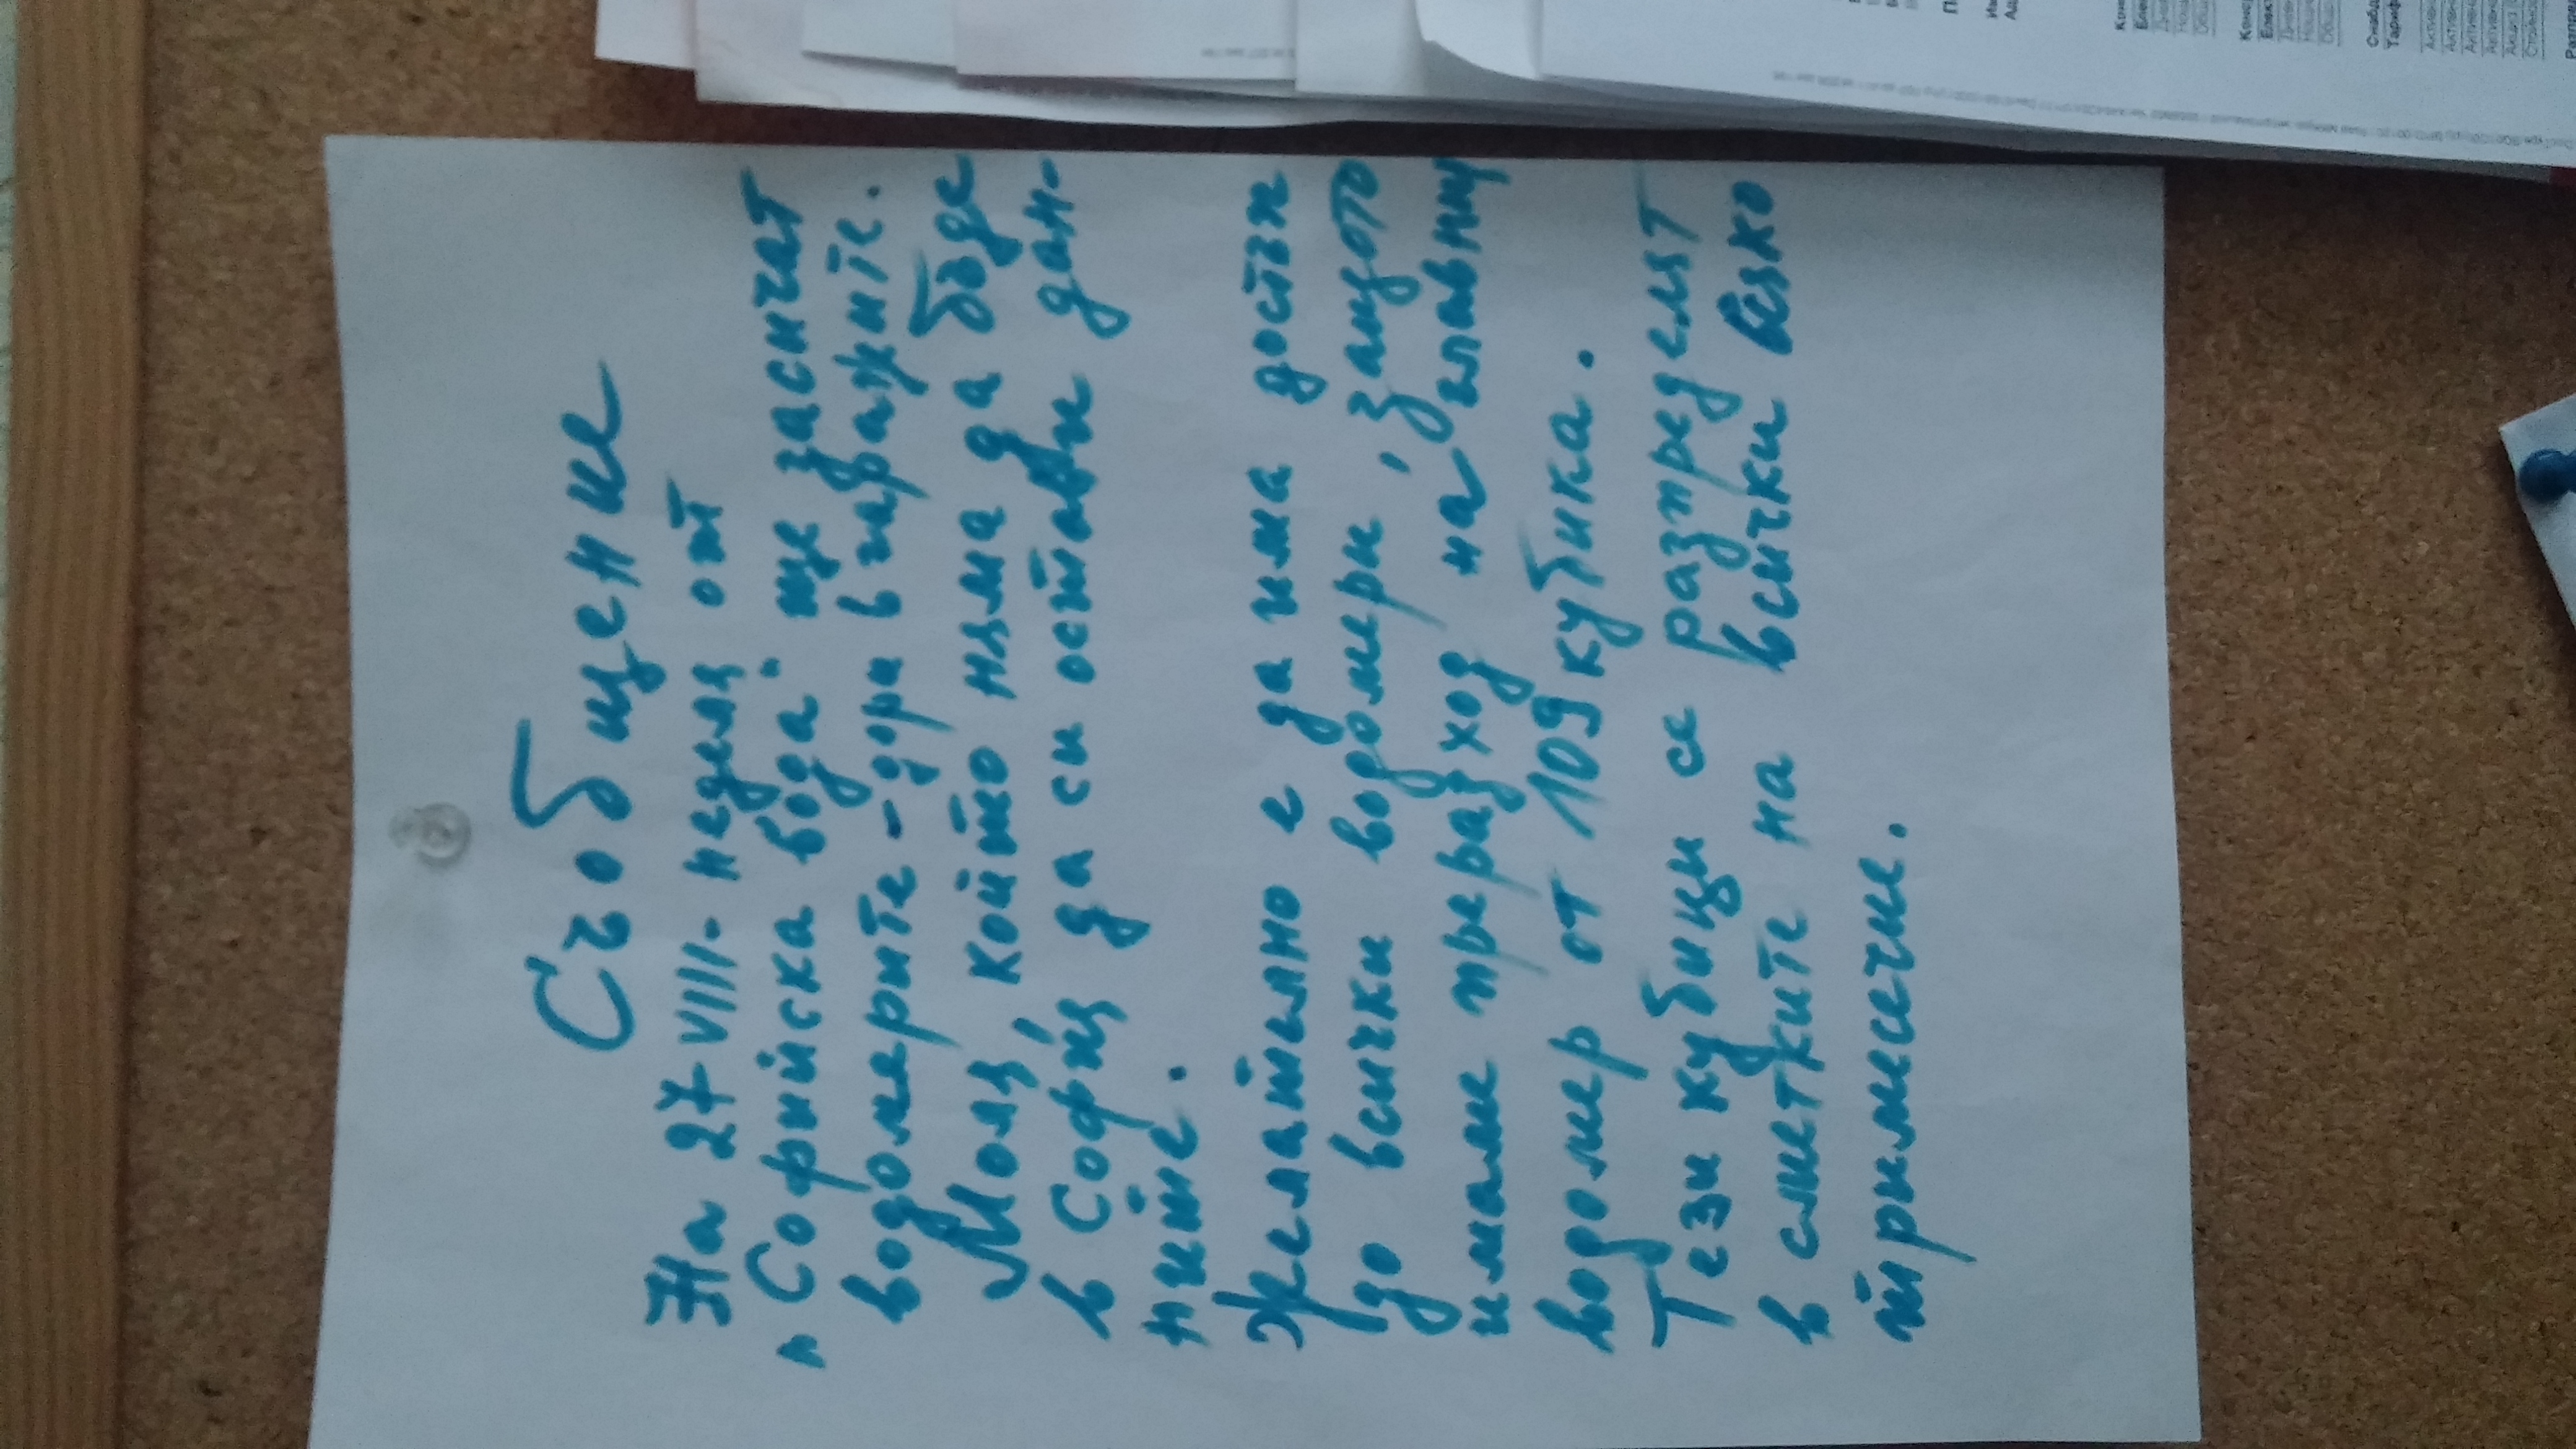 Съобщение
На 27 VIII - неделя от
„Софийска вода" ще засичат
водомерите - дори в гаражите.
Моля, който няма да бъде
в София да си остави дан-
ните.
Желателно е да има достъп
до всички водомери, защото
имаме преразход на главния
водомер от 109 кубика.
Тези кубици се разпределят
в сметките на всички всяко
тримесечие.
Снабд
Тариф
Активн
Активн
Активн
Активн
Акциз
Стойно
Разпред